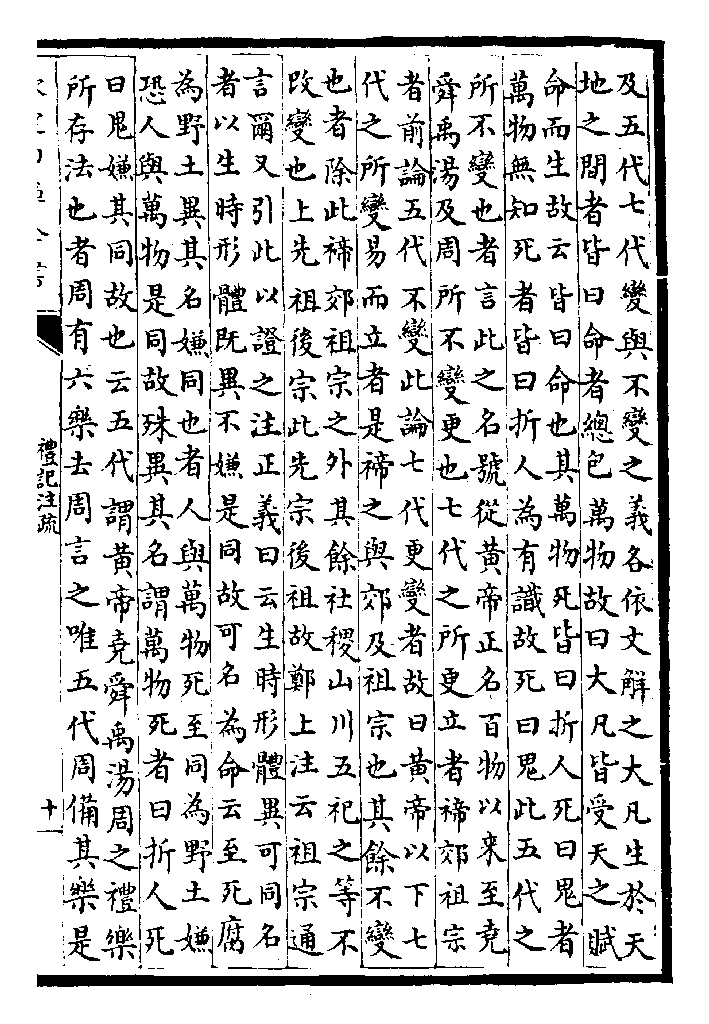 及五代七代變與不變之義各依文解之大凡生於天
地之間者皆曰命者總包萬物故曰大凡皆受天之賦
命而生故云皆曰命也其萬物死皆曰折人死曰鬼者
萬物無知死者皆曰折人為有識故死曰鬼此五代之
所不變也者言此之名號從黃帝正名百物以來至堯
舜禹湯及周所不變更也七代之所更立者禘郊祖宗
者前論五代不變此論七代更變者故曰黃帝以下七
代之所變易而立者是禘之與郊及祖宗也其餘不變
也者除此禘郊祖宗之外其餘社稷山川五祀之等不
改變也上先祖後宗此先宗後祖故鄭上注云祖宗通
言爾又引此以證之注正義曰云生時形體異可同名
者以生時形體既異不嫌是同故可名為命云至死腐
為野土異其名嫌同也者人與萬物死至同為野土嫌
恐人與萬物是同故殊異其名謂萬物死者曰折人死
曰鬼嫌其同故也云五代謂黃帝堯舜禹湯周之禮樂
所存法也者周有六樂去周言之唯五代周備其樂是
禮記注疏
十一